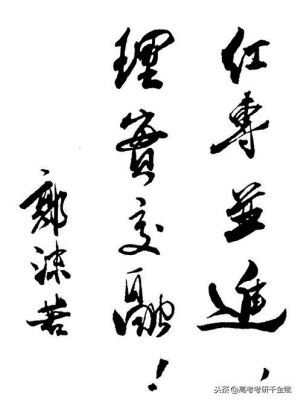 红專並進，
理實交融！
郭沫若
头条 @高考考研千金赋